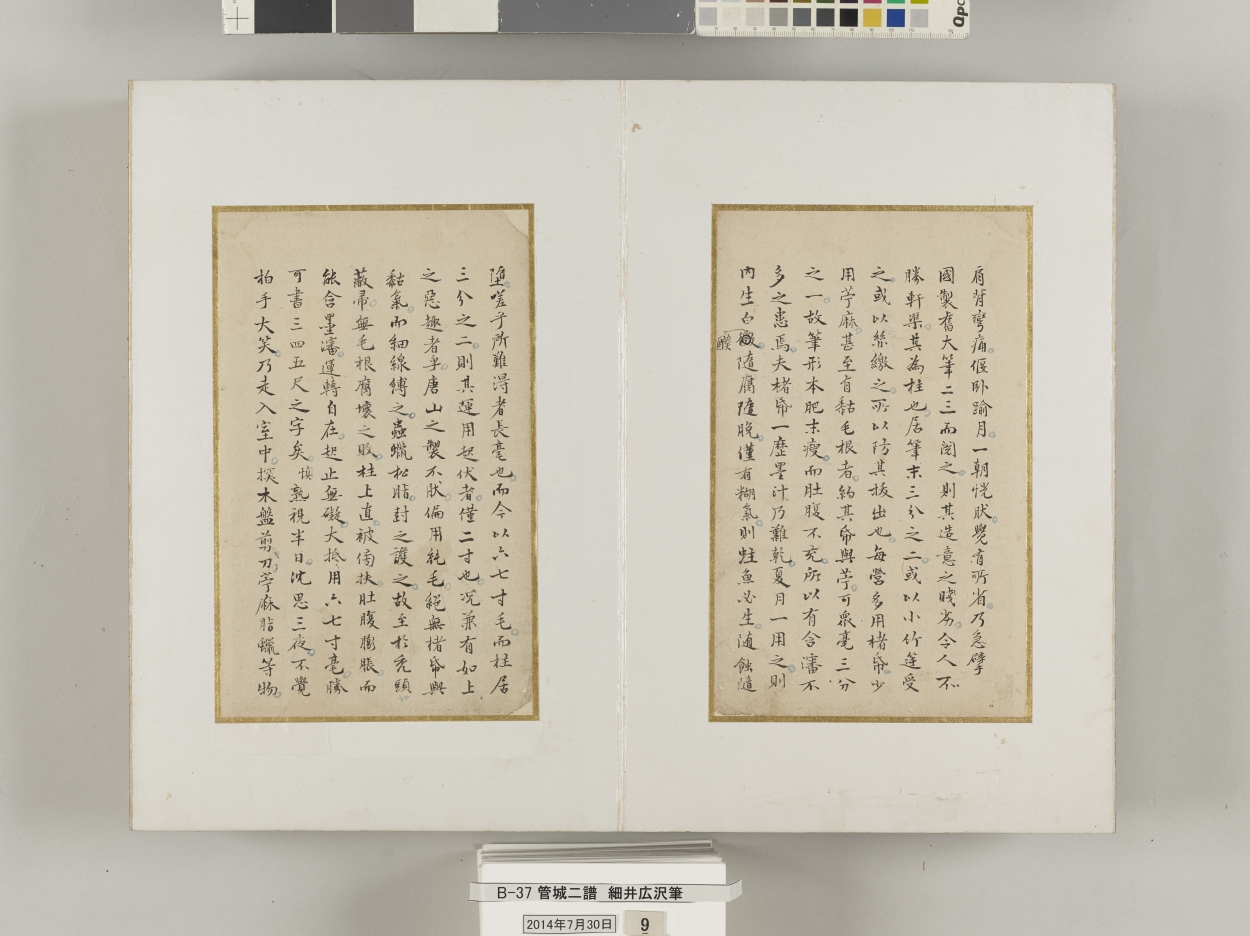 肩背彎痛偃卧踰月一朝恍肰覺有所省乃急擘
國製舊大筆二三而閲之則其造意之賤劣令人不
勝軒渠其為柱也居筆末三分之二或以小竹筳受
之或以絲繳之所以防其拔出也每營多用楮帋少
用苧麻甚至有黏毛根者約其帋與苧可衆毫三分
之一故筆形本肥末瘦而肚腹不充所以有含瀋不
多之患焉夫楮帋一歷墨汁乃難乾夏月一用之則
內生白隨腐隨脫僅有糊氣則蛀魚必生随蝕隨
醭
墮嗟乎所難得者長毫也而今以六七寸毛而柱居
三分之二則其運用起伏者僅二寸也况兼有如上
之惡趣者乎唐山之製不肰偏用純毛絕無楮帋與
黏氣而細線縛之蟲蠟松脂封之護之故至於禿頭
蔽帚無毛根腐壞之敗柱上直被傍扶肚腹膨脹而
能含墨瀋運轉自在起止無礙大抵用六七寸毫勝
可書三四五尺之字矣慎熟視半日沈思三夜不覺
拍手大笑乃走入室中探木盤剪刀苧麻脂蠟等物
B-37 管城二譜 細井広沢筆
2014年7月30日
9